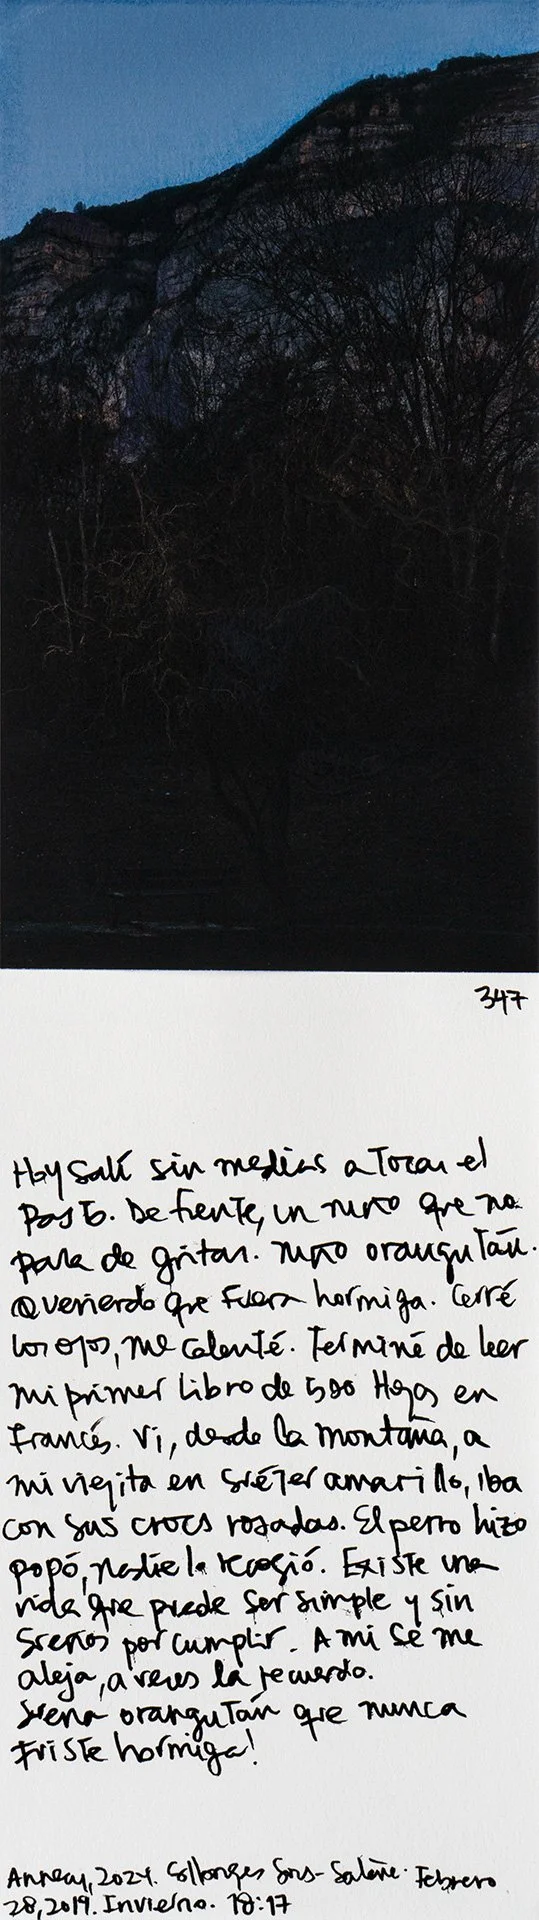 347
Hoy salí sin medias a tocar el
pasto. De frente, un niño que no
para de gritar. niño orangután.
Queriendo que fuera hormiga. Cerré
los ojos, me calenté. Terminé de leer
mi primer libro de 500 Hojas en
Francés. Vi, desde la montaña, a
mi viejita en suéter amarillo, iba
con sus crocs rosadas. El perro hizo
popó, nadie lo recogió. Existe una
vida que puede ser simple y sin
sueños por cumplir. A mi se me
aleja, a veces la recuerdo.
suena orangután que nunca
fuiste hormiga!
Annecy, 2024. Collonges Sous-Salève. Febrero
28, 2019. Invierno. 18:17